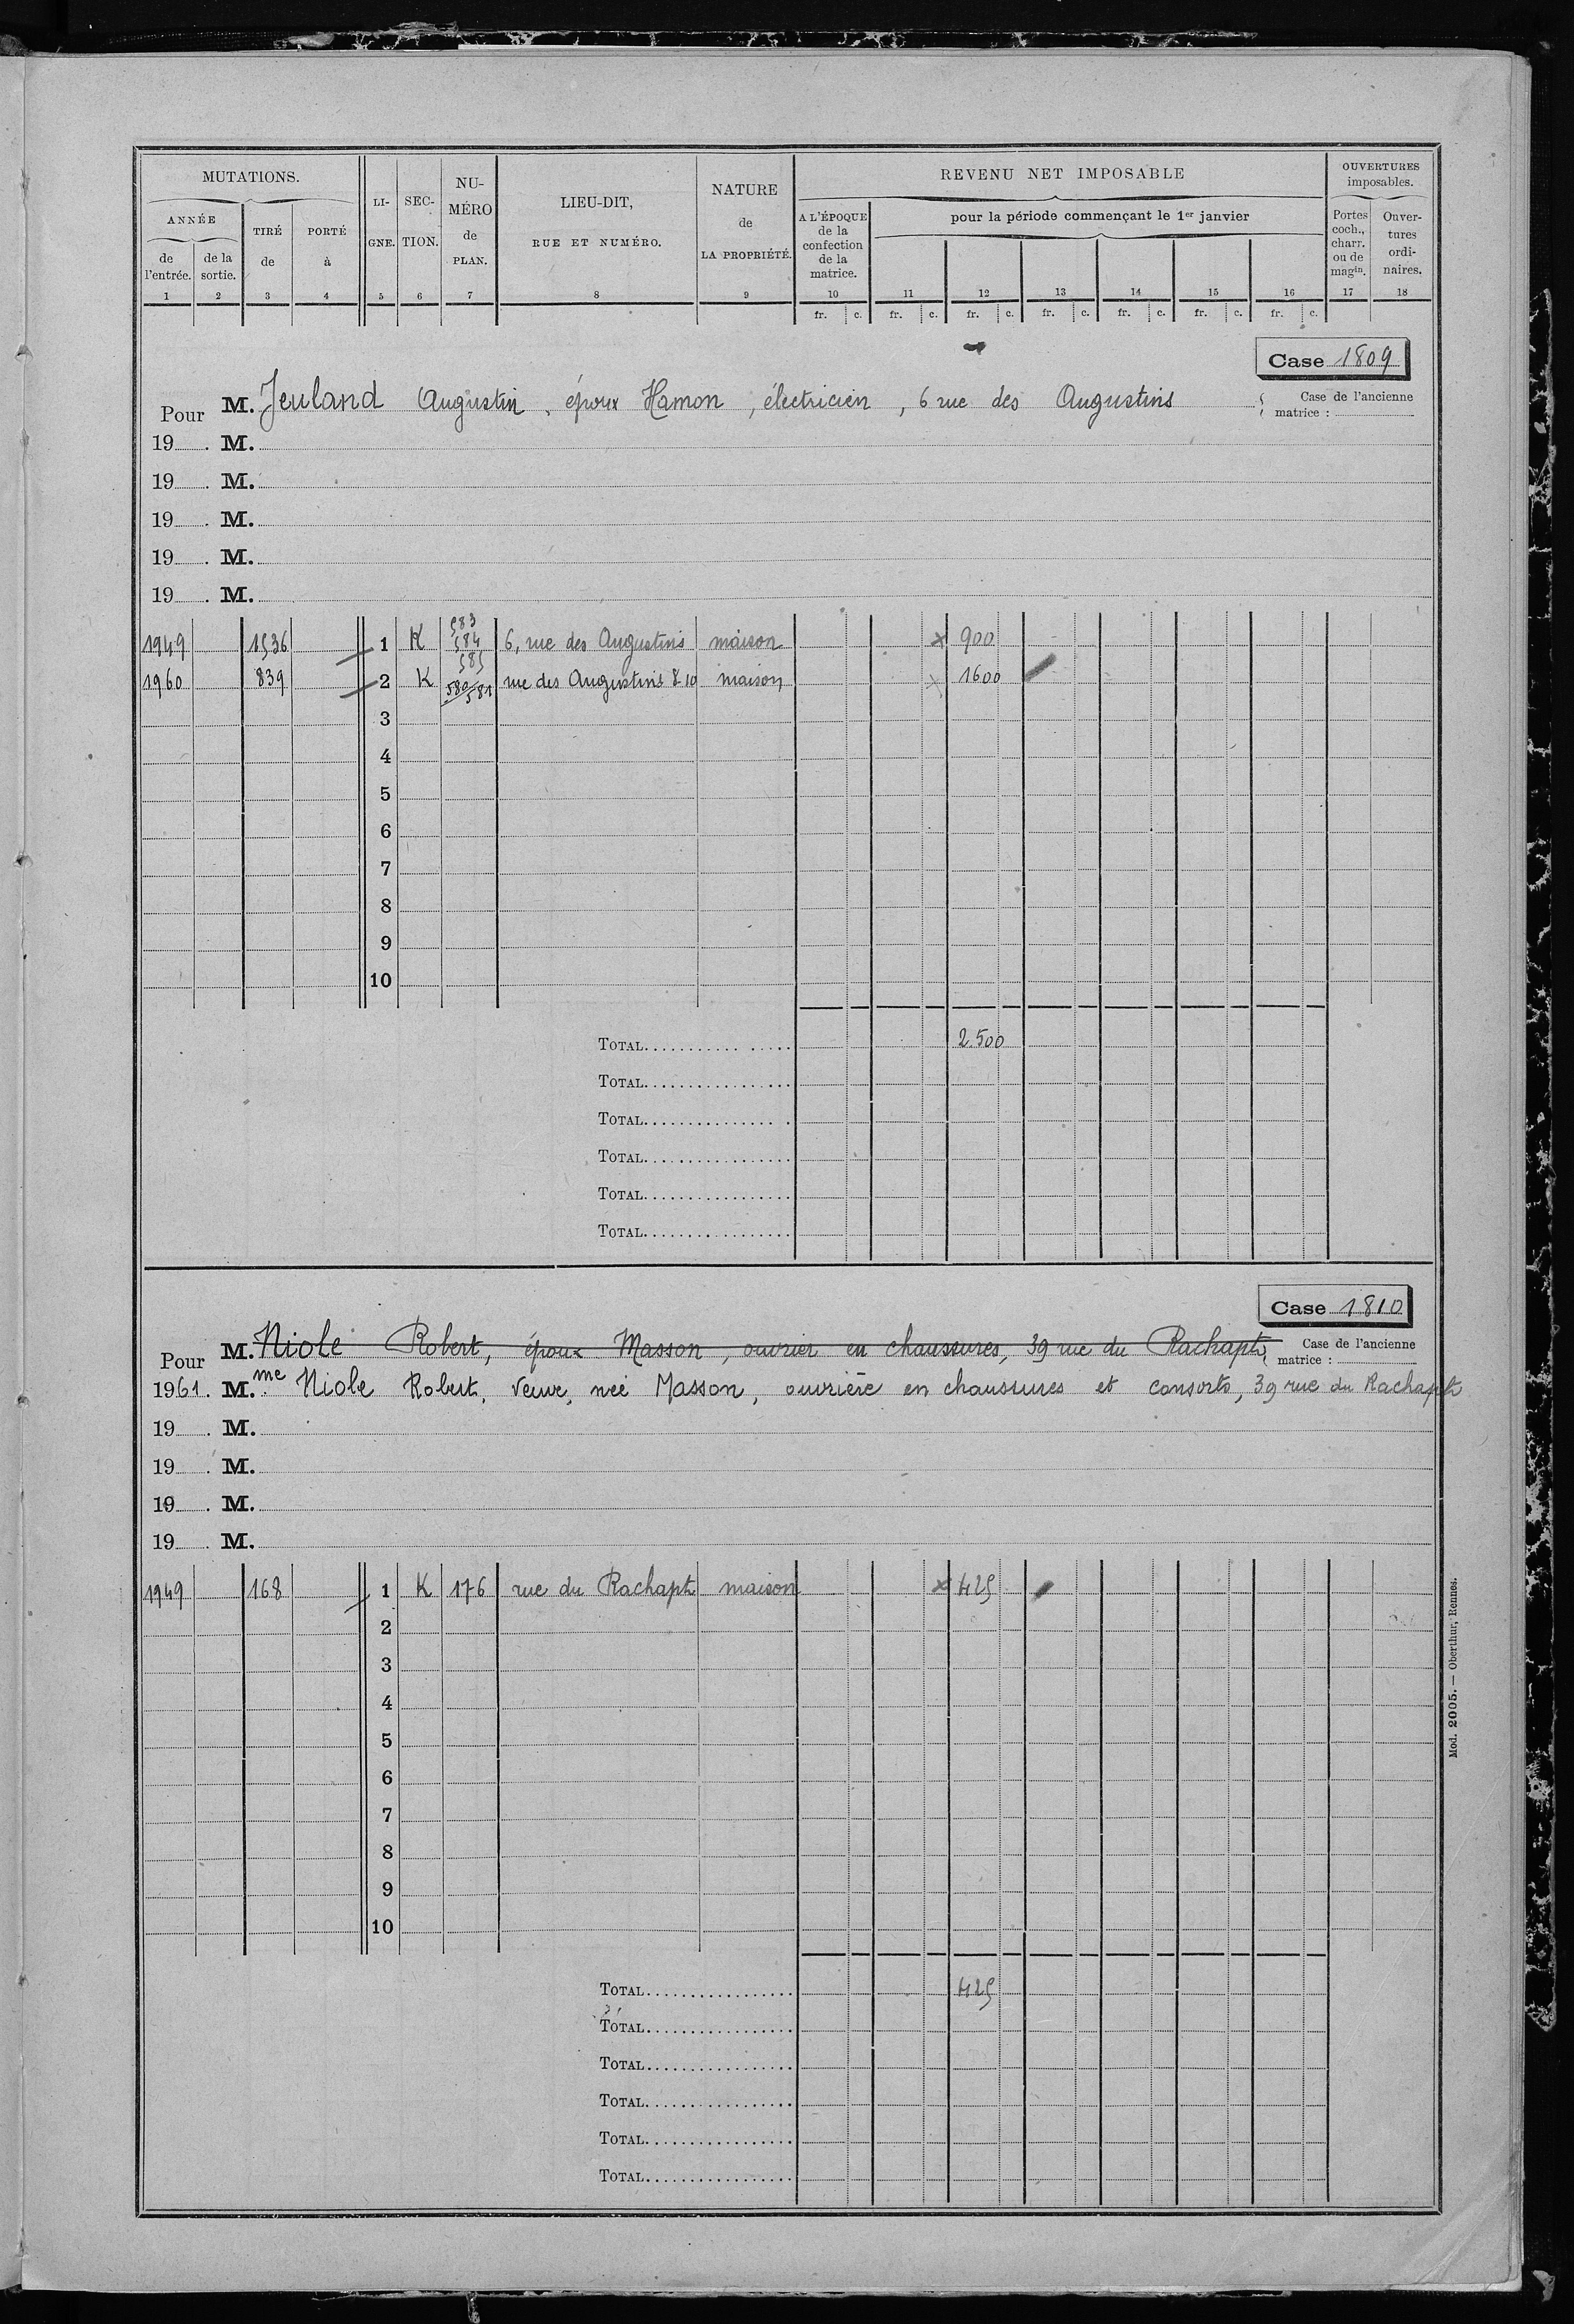 MUTATIONS. LI-GNE. SEC-TION. NU-MÉRO de PLAN. LIEU-DIT, RUE ET NUMÉRO. NATURE de LA PROPRIÉTÉ. REVENU NET IMPOSABLE OUVERTURES imposables.
ANNÉE TIRÉ de PORTÉ à A L'ÉPOQUE de la confection de la matrice. pour la période commençant le 1er janvier Portes coch., charr. ou de magin. Ouver-tures ordi-naires.
de l'entrée. de la sortie.
1 2 3 4 5 6 7 8 9 10 11 12 13 14 15 16 17 18
fr. c. fr. c. fr. c. fr. c. fr. c. fr. c. fr. c.
Case 1809
Pour M. Jeuland Augustin, époux Hamon, électricien, 6 rue des Augustins Case de l'ancienne matrice :
19 . M.
19 . M.
19 . M.
19 . M.
19 . M.
1949 1536 1 K 583 584 585 6, rue des Augustins maison x 900
1960 839 2 K 580/581 rue des Augustins 8-10 maison x 1600
3
4
5
6
7
8
9
10
TOTAL 2.500
TOTAL
TOTAL
TOTAL
TOTAL
TOTAL
Case 1810
Pour M. Niole Robert, époux Masson, ouvrier en chaussures, 39 rue du Rachapt, Case de l'ancienne matrice :
1961. M.me Niole Robert, Veuve, née Masson, ouvrière en chaussures et consorts, 39 rue du Rachapt
19 . M.
19 . M.
19 . M.
19 . M.
1949 168 1 K 176 rue du Rachapt maison x 425
2
3
4
5
6
7
8
9
10
TOTAL 425
TOTAL
TOTAL
TOTAL
TOTAL
TOTAL
Mod. 2005. — Oberthur, Rennes.